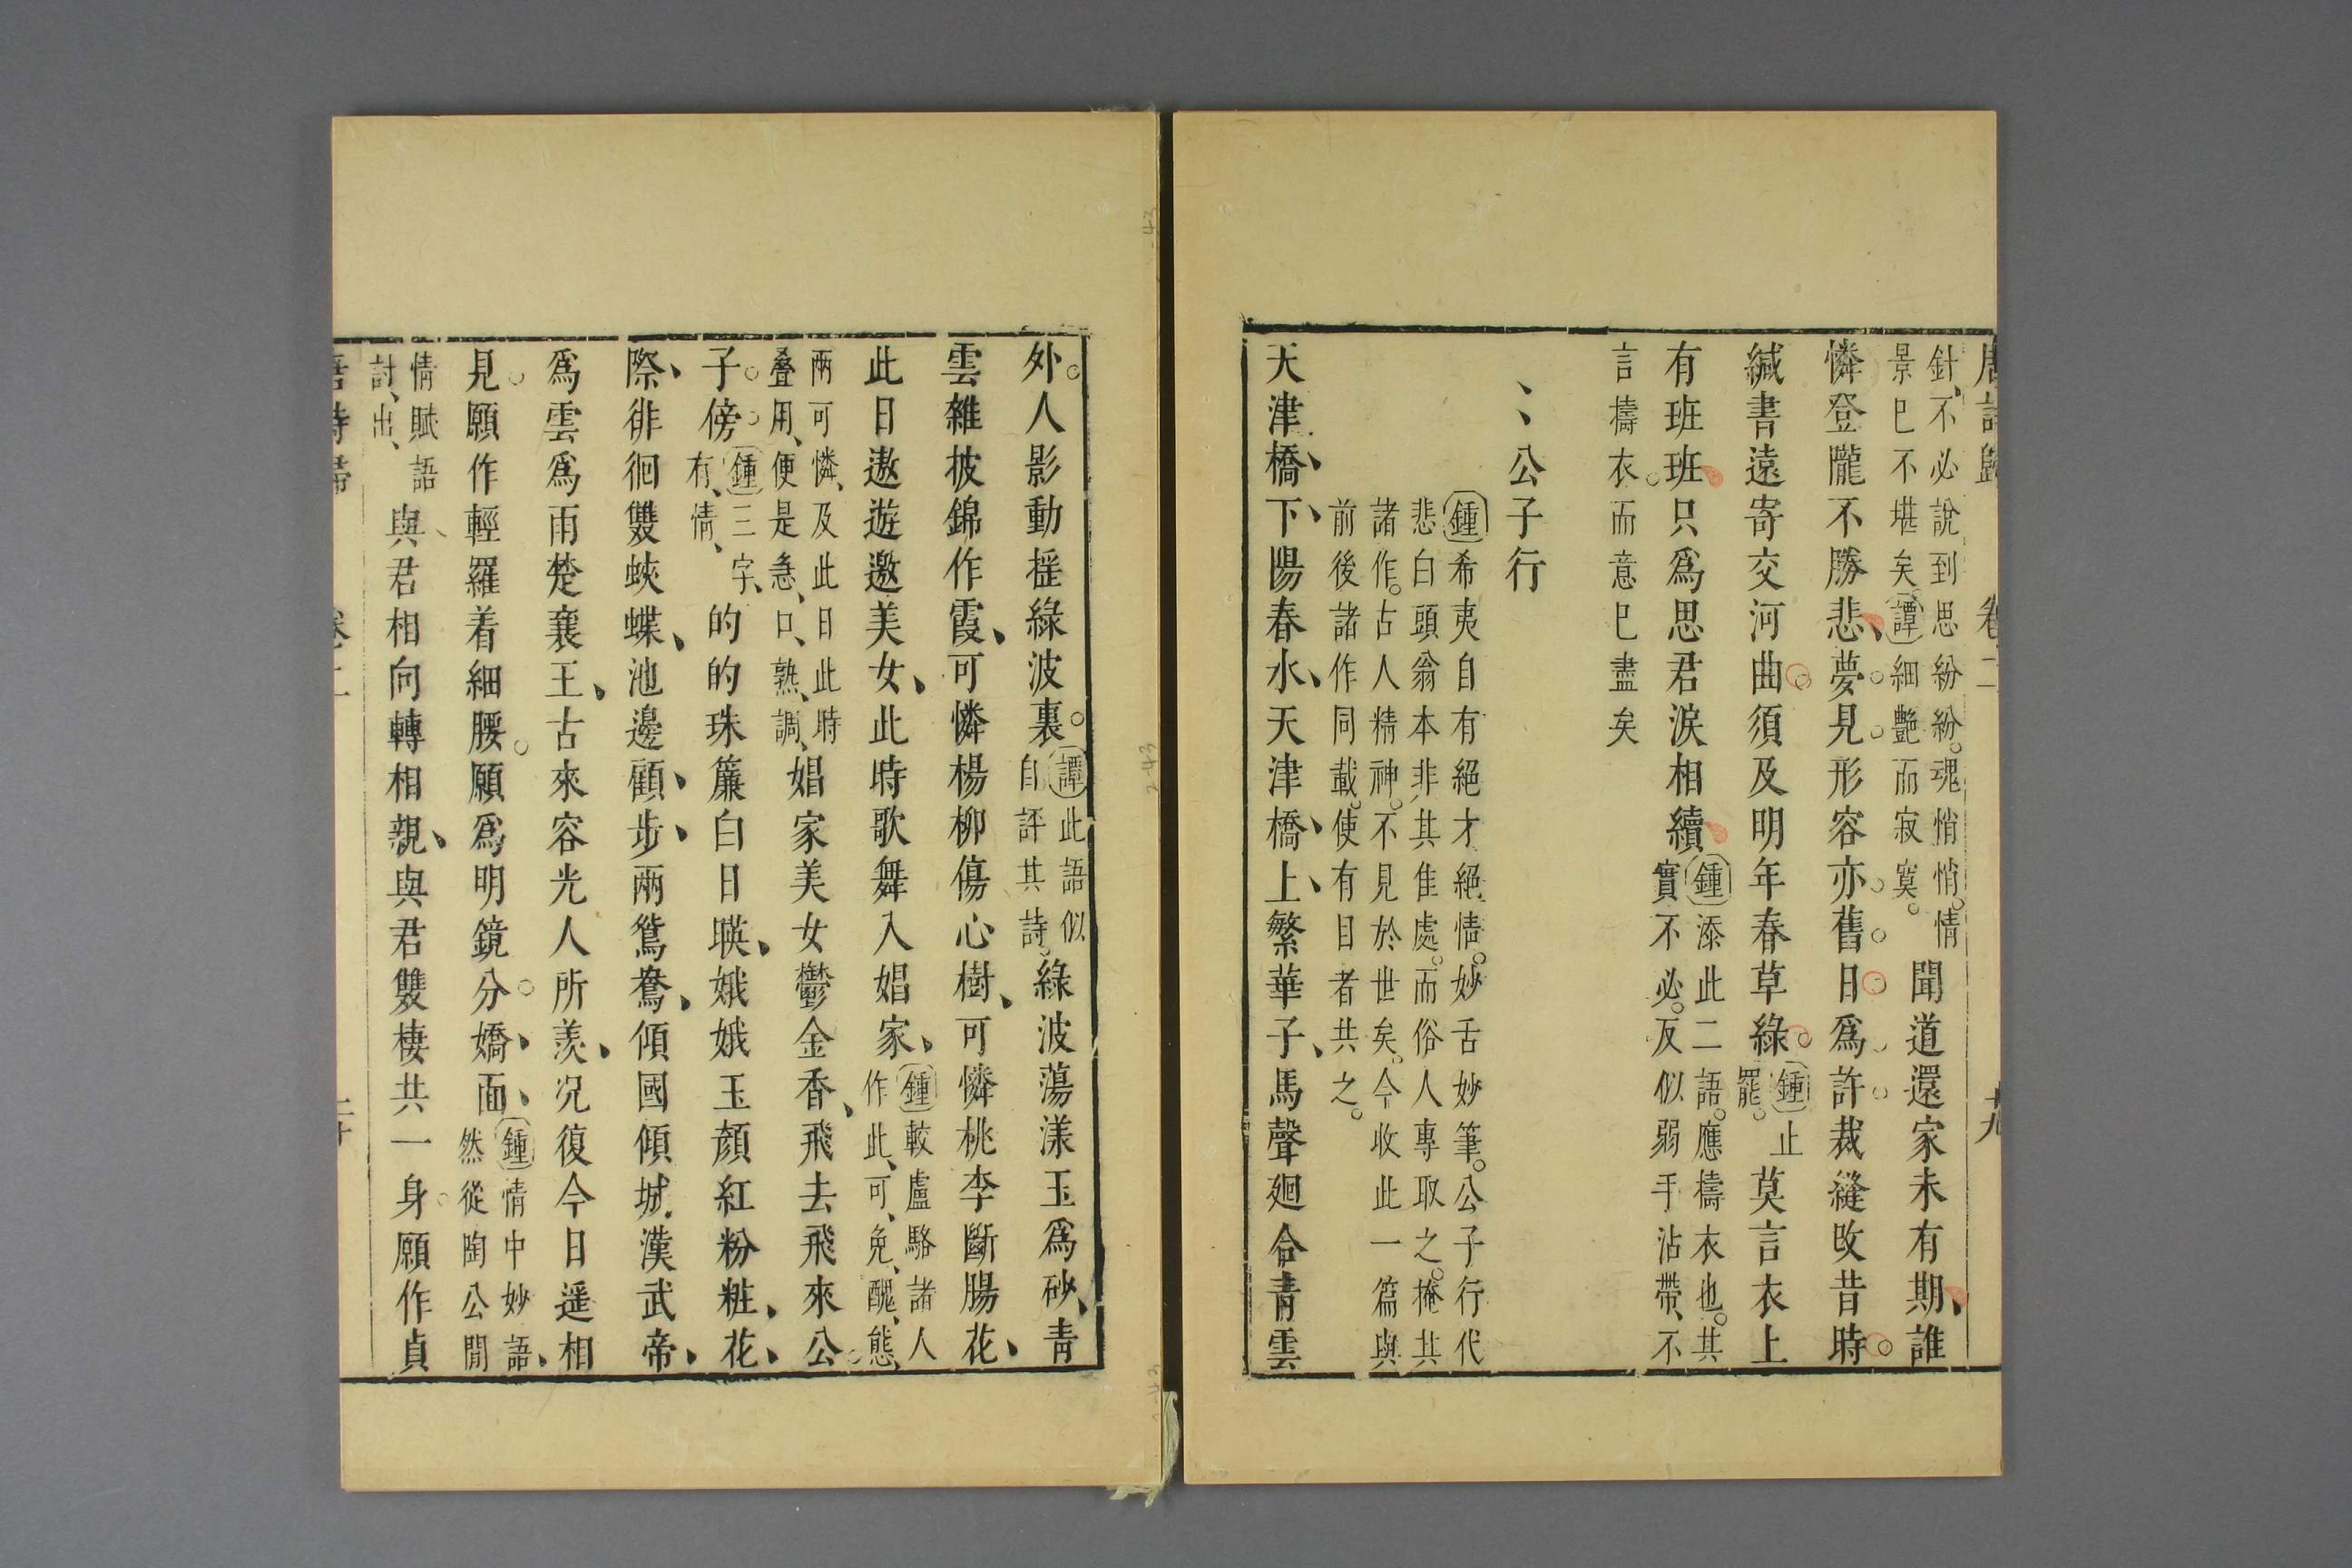 唐詩歸 卷二 十九
針不必說到思紛紛魂悄悄情
景已不堪矣譚細艷而寂寞
聞道還家未有期誰
憐登隴不勝悲夢見形容亦舊日爲許裁縫改昔時
緘書遠寄交河曲須及明年春草綠
鍾止
罷
莫言衣上
有班班只爲思君淚相續
鍾添此二語應擣衣也其
實不必反似弱手沾帶不
言擣衣而意已盡矣
公子行
鍾希夷自有絕才絕情妙舌妙筆公子行代
悲白頭翁本非其佳處而俗人專取之掩其
諸作古人精神不見於世矣今收此一篇與
前後諸作同載使有目者共之
天津橋下陽春水天津橋上繁華子馬聲廻合青雲
外人影動搖綠波裏
譚此語似
自評其詩
綠波蕩漾玉爲砂青
雲雜披錦作霞可憐楊柳傷心樹可憐桃李斷腸花
此日遨遊邀美女此時歌舞入娼家
鍾較盧駱諸人
作此可免醜態
兩可憐及此日此時
叠用便是急口熟調
娼家美女鬱金香飛去飛來公
子傍
鍾三字
有情
的的珠簾白日暎娥娥玉顏紅粉粧花
際徘徊雙蛺蝶池邊顧步兩鴛鴦傾國傾城漢武帝
爲雲爲雨楚襄王古來容光人所羨况復今日遥相
見願作輕羅着細腰願爲明鏡分嬌面
鍾情中妙語
然從陶公閒
情賦語
討出
與君相向轉相親與君雙棲共一身願作貞
卷二 二十